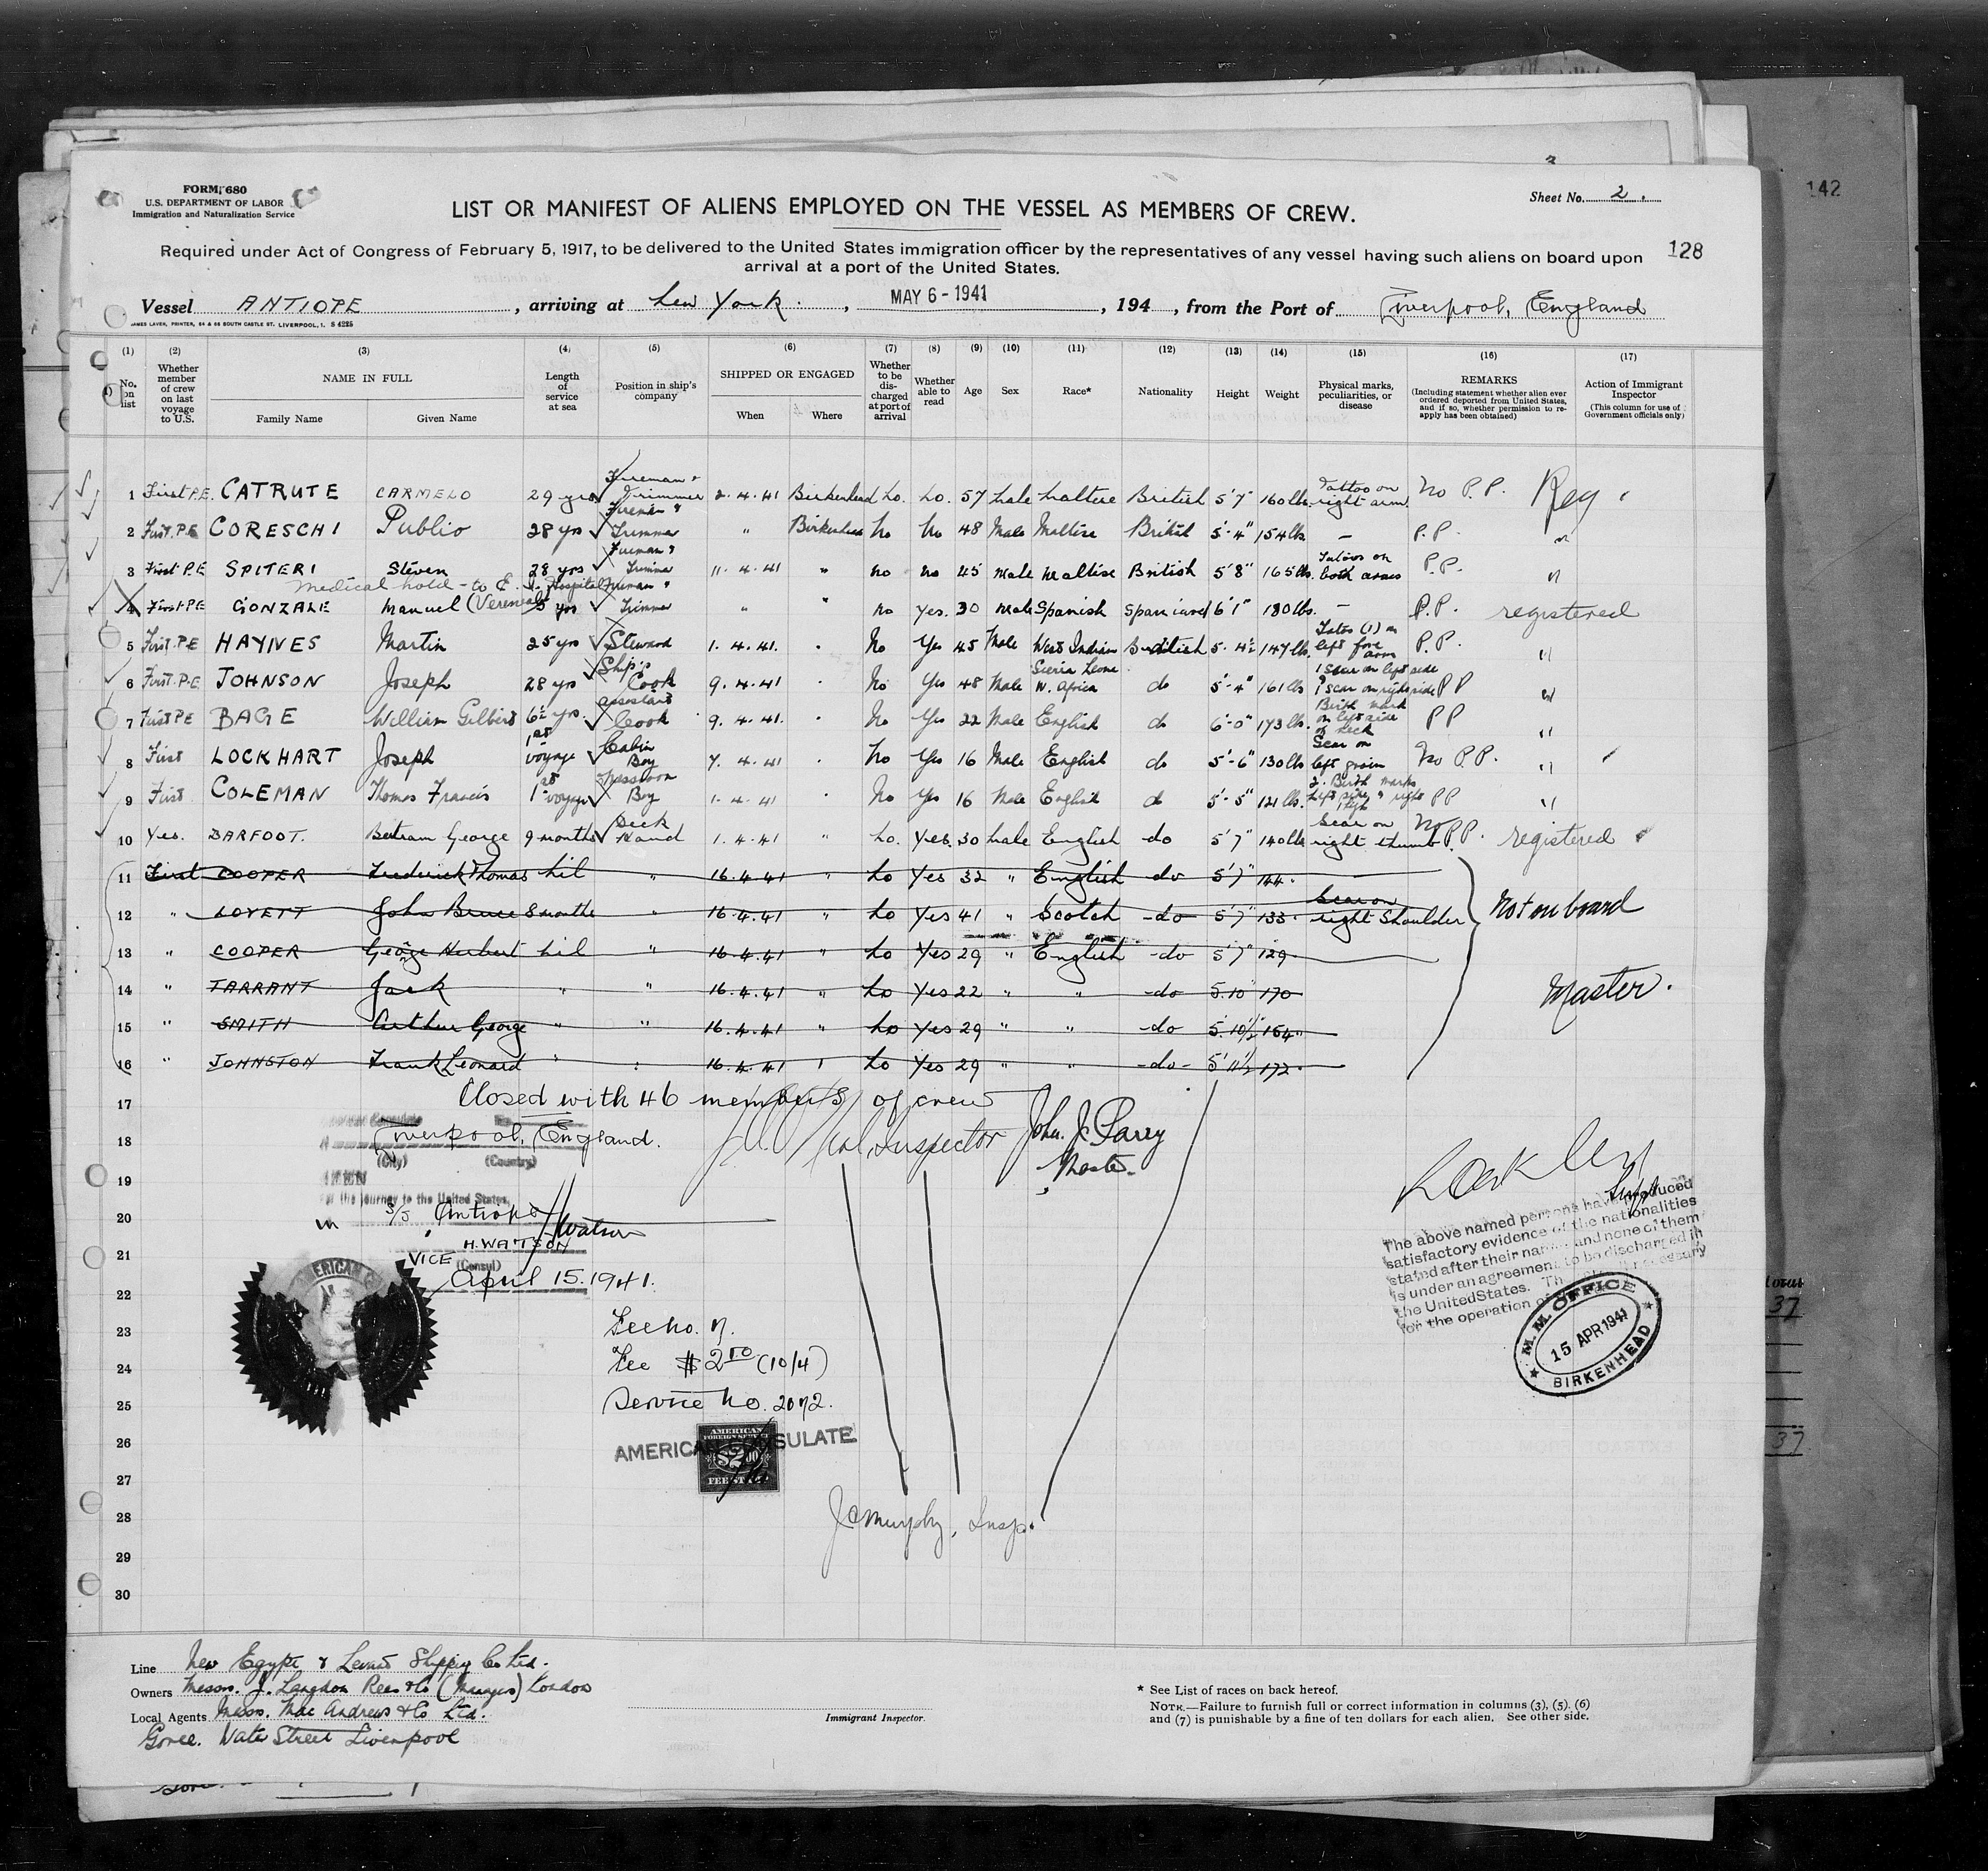 142
3
FORM 680
U.S. DEPARTMENT OF LABOR
Immigration and Naturalization Service
Sheet No. 2.
LIST OR MANIFEST OF ALIENS EMPLOYED ON THE VESSEL AS MEMBERS OF CREW.
Required under Act of Congress of February 5, 1917, to be delivered to the United States immigration officer by the representatives of any vessel having such aliens on board upon
arrival at a port of the United States.
128
Vessel ANTIOPE, arriving at New York, MAY 6-1941, 194 , from the Port of Liverpool, England
JAMES LAVER, PRINTER, 64 & 66 SOUTH CASTLE ST. LIVERPOOL, 1. S 4225
(1) (2) (3) (4) (5) (6) (7) (8) (9) (10) (11) (12) (13) (14) (15) (16) (17)
No. on list
Whether member of crew on last voyage to U.S.
NAME IN FULL
Family Name Given Name
Length of service at sea
Position in ship's company
SHIPPED OR ENGAGED
When Where
Whether to be discharged at port of arrival
Whether able to read
Age Sex Race* Nationality Height Weight
Physical marks, peculiarities, or disease
REMARKS
(Including statement whether alien ever ordered deported from United States, and if so, whether permission to re-apply has been obtained)
Action of Immigrant Inspector
(This column for use of Government officials only)
1 First P.E. CATRUTE CARMELO 29 yrs Fireman & Trimmer 2.4.41 Birkenhead No. No. 57 Male Maltese British 5'7" 160 lbs. Tattoo on right arm. No P.P. Reg.
2 First. P.E. CORESCHI Publio 28 yrs Fireman & Trimmer " Birkenhead No No 48 Male Maltese British 5'-4" 154 lbs — P.P. "
3 First P.E SPITERI Steven 28 yrs Fireman & Trimmer 11.4.41 " no no 45 male maltese British 5'8" 165 lbs. Tatoos on both arms P.P. "
Medical hold - to E. I. Hospital (Venereal)
4 First P.E GONZALE Manuel 5 yrs Fireman & Trimmer " " no yes. 30 male Spanish Spaniard 6'1" 180 lbs. — P.P. registered
5 First. P.E HAYNES Martin 25 yrs Steward 1.4.41. " No Yes 45 Male West Indian British 5-4½ 147 lbs. Tatoo (1) on left fore arm P.P. "
6 First. P.E JOHNSON Joseph 28 yrs Ship's Cook 9.4.41 " No Yes 48 Male Sierra Leone W. Africa do 5'-4" 161 lbs 1 scar on left side 1 scar on right side P P "
7 First P.E BAGE William Gilbert 6½ yrs. Assistant Cook 9.4.41. " No Yes 22 Male English do 6'-0" 173 lbs. Birth mark on left side of neck P P "
8 First LOCKHART Joseph 1st voyage Cabin Boy 7.4.41 " No Yes 16 Male English do 5'-6" 130 lbs Scar on left groin No P.P. "
9 First COLEMAN Thomas Francis 1st voyage Messroom Boy 1.4.41 " No Yes 16 Male English do 5'-5" 121 lbs. 2 Birth marks left side & right thigh P P "
10 Yes. BARFOOT. Bertram George 9 months Deck Hand 1.4.41 " No. Yes. 30 Male English -do 5'7" 140 lbs Scar on right thumb. No P.P. registered
11 First COOPER Frederick Thomas Nil " 16.4.41 " No Yes 32 " English -do 5'7" 144.
12 " LOVETT John Bruce 8 months " 16.4.41 " No Yes 41 " Scotch -do- 5'7" 133 Scar on right Shoulder
Not on board
13 " COOPER George Herbert Nil " 16.4.41 " No Yes 29 " English -do- 5'7" 129
14 " TARRANT Jack " " 16.4.41 " No Yes 22 " " -do 5.10 170
Master.
15 " SMITH Arthur George " " 16.4.41 " No Yes 29 " " -do 5.10½ 164
16 " JOHNSTON Frank Leonard " " 16.4.41 " No Yes 29 " " -do- 5'11½ 172
17 Closed with 46 members of crew
18 Liverpool, England.
(City) (Country)
Inspector
John. J. Parry
Master.
19
the journey to the United States,
20 in S/S Antiope
HWatson
21 H. WATSON
VICE (Consul)
22 April 15. 1941.
AMERICAN
23 Fee No. 7.
24 Fee $2.00 (10/4)
25 Service No. 2072.
26 AMERICAN CONSULATE
AMERICAN
FOREIGN SERVICE
$2.00
FEE STAMP
27
28 JCMurphy, Insp.
29
30
The above named persons have produced
satisfactory evidence of the nationalities
stated after their names and none of them
is under an agreement to be discharged in
the United States. The necessary
for the operation of
M. M. OFFICE
15 APR 1941
BIRKENHEAD
37
37
Line New Egypt & Levant Shipping Co Ltd.
Owners Messrs. J. Langdon Rees & Co (Managers) London
Local Agents Messrs. Mac Andrews & Co Ltd.
Goree. Water Street Liverpool
Immigrant Inspector.
* See List of races on back hereof.
NOTE.—Failure to furnish full or correct information in columns (3), (5), (6)
and (7) is punishable by a fine of ten dollars for each alien. See other side.